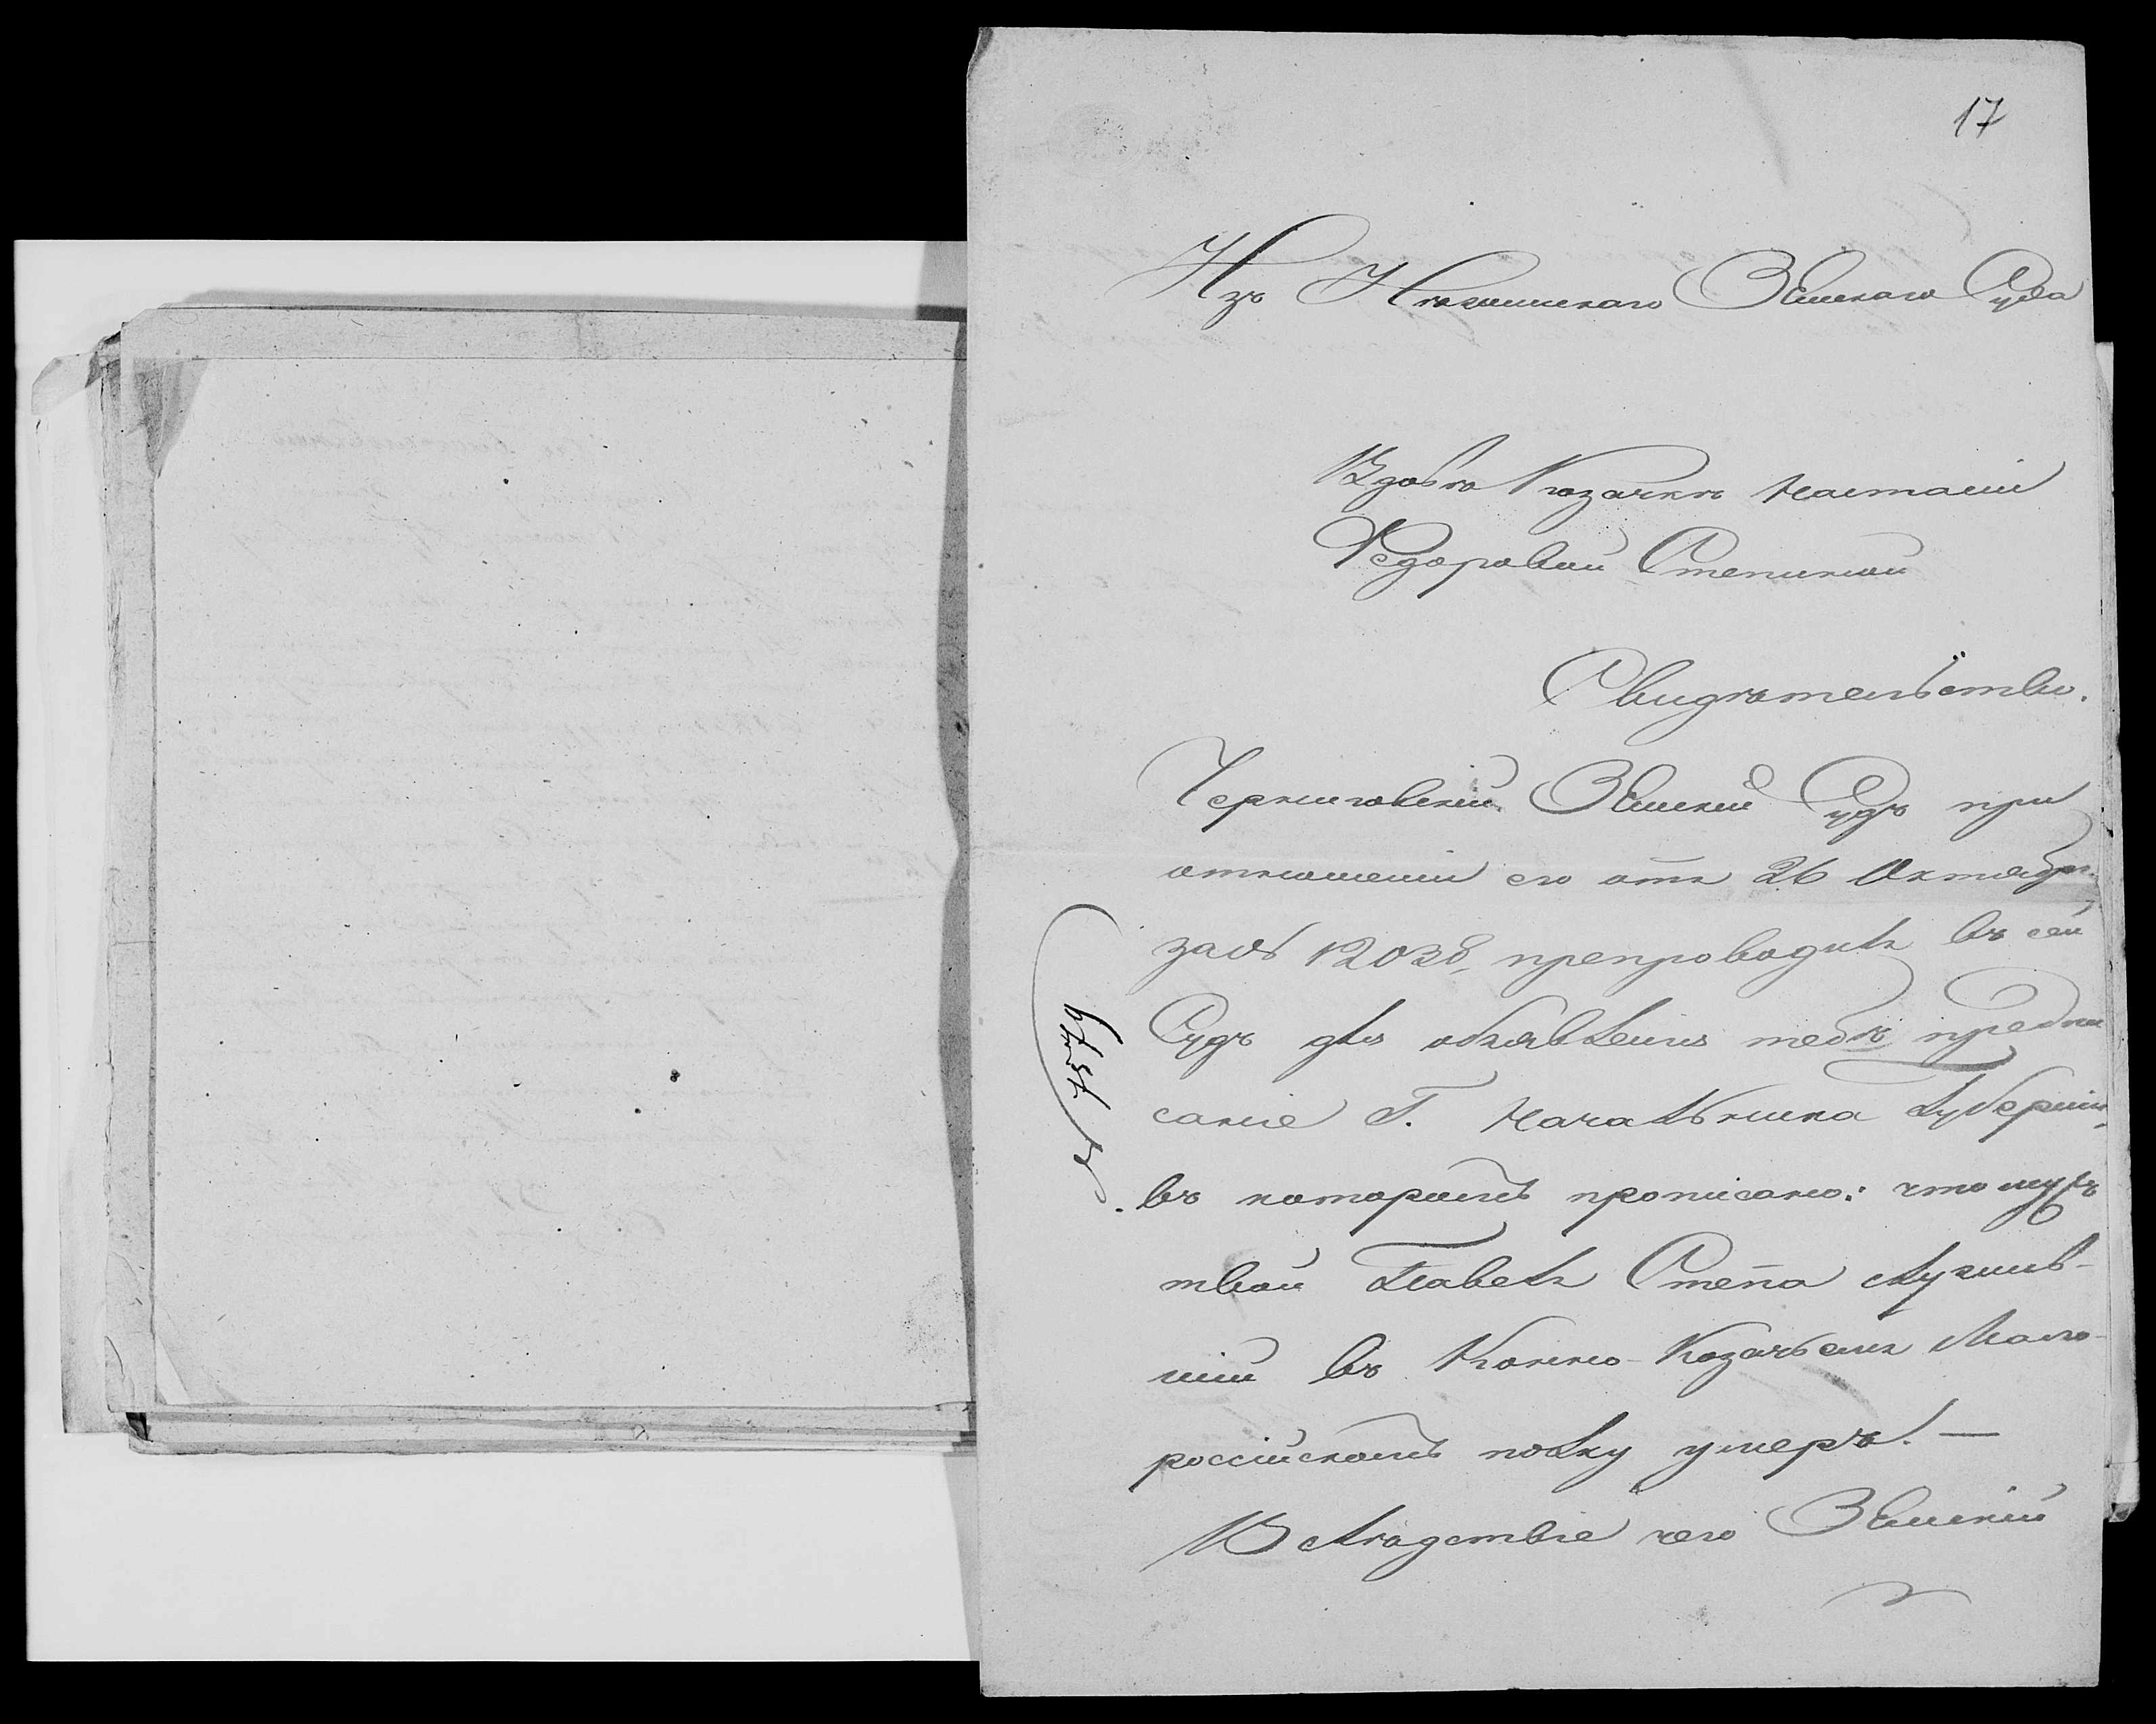 17
Изъ Нѣжинскаго Земскаго Суда
Вдовѣ Козачкѣ Настасіи
Федоровой Степиной
Свидѣтельство.
Черниговскій Земскій Судъ при
отношеніи его отъ 26 Октября
за № 12038, препроводилъ въ сей
Судъ для объявленія тебѣ предпи
саніе Г. Начальника Губерніи,
въ которомъ прописано: что мужъ
твой Павелъ Степа служив-
шій въ Конно-Козачьемъ Мало-
россійскомъ полку умеръ. —
Вслѣдствіе чего Земскій